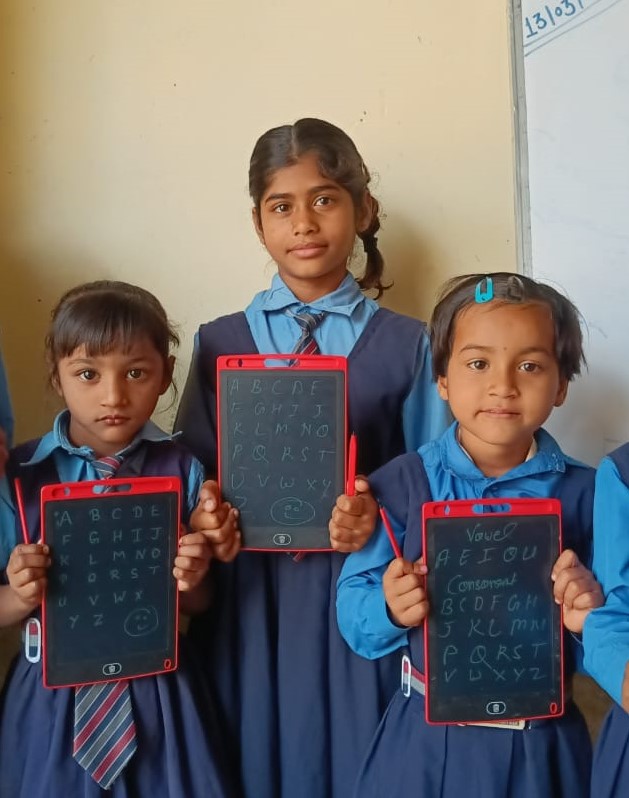 13/03/
A B C D E
F G H I J
K L M N O
P Q R S T
U V W X
Y Z
A B C D E
F G H I J
K L M N O
P Q R S T
U V W X Y
Z
Vowel
A E I O U
Consonant
B C D F G H
J K L M N
P Q R S T
V W X Y Z